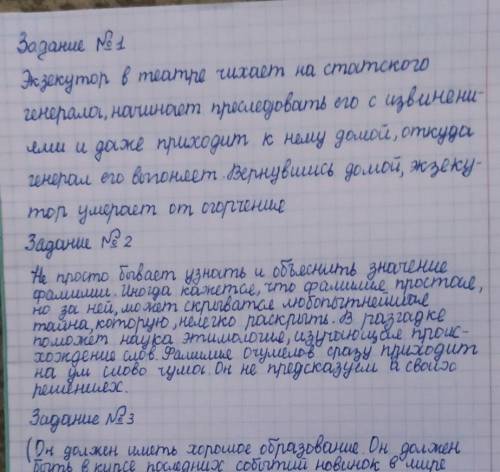 Задание №1
Экзекутор в театре чихает на статского
генерала, начинает преследовать его с извинени-
ями и даже приходит к нему домой, откуда
генерал его выгоняет. Вернувшись домой, экзеку-
тор умерает от огорчение
Задание №2
Не просто бывает узнать и объяснить значение
фамилии. Иногда кажется, что фамилия простая,
но за ней, может скрыватся любопытнейшая
тайна, которую, нелегко раскрыть. В разгадке
поможет наука этимология, изучающая проис-
хождение слов. Фамилие Очумелов сразу приходит
на ум слово чума. Он не предсказуем в своих
решениех.
Задание №3
(Он должен иметь хорошое образование. Он должен
быть в курсе последних событий новинок в мире